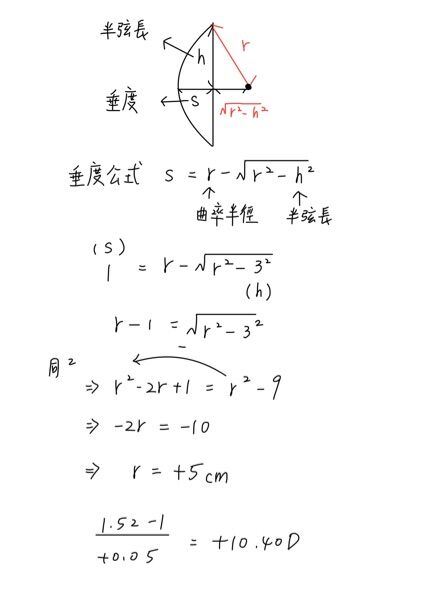 半弦長
r
h
垂度
s
√r²-h²
垂度公式 s = r - √r² - h²
曲率半徑 半弦長
(s)
1 = r - √r² - 3²
(h)
r - 1 = √r² - 3²
同²
⇒ r² - 2r + 1 = r² - 9
⇒ -2r = -10
⇒ r = +5cm
1.52 - 1
+0.05
= +10.40D